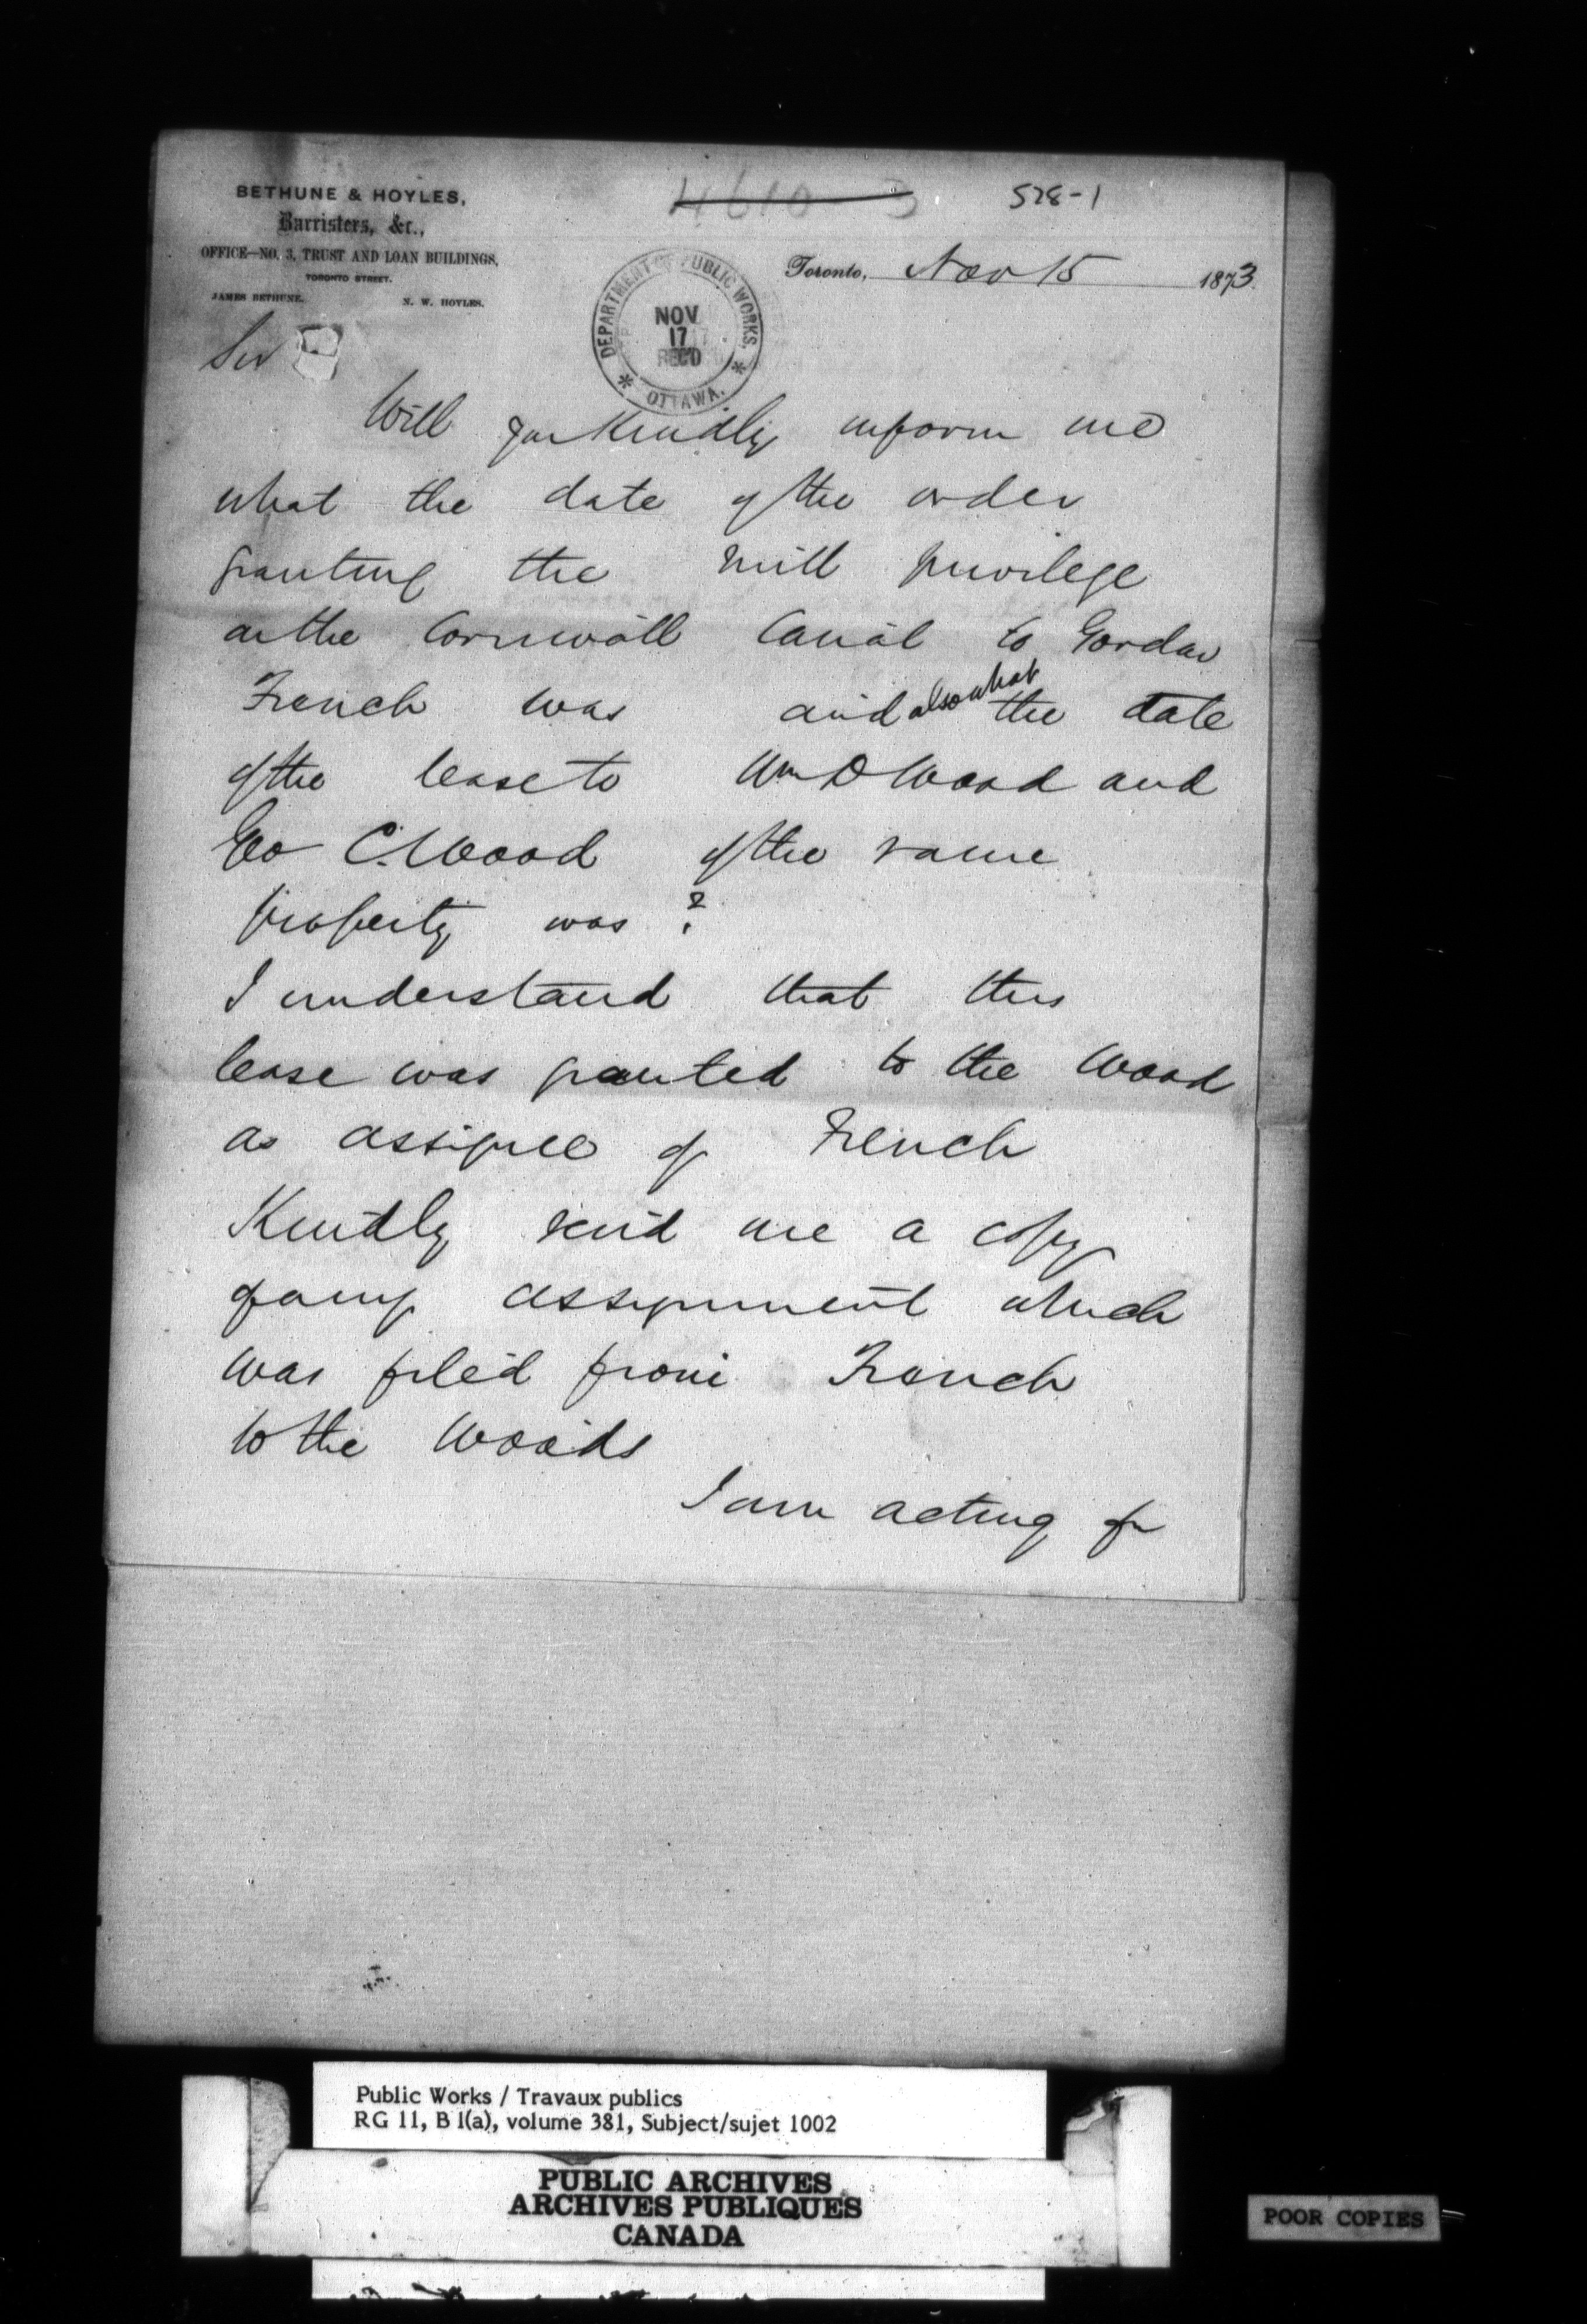 BETHUNE & HOYLES,
Barristers, &c.,
OFFICE—NO. 3, TRUST AND LOAN BUILDINGS,
TORONTO STREET.
JAMES BETHUNE. N. W. HOYLES.
4610 3 578-1
DEPARTMENT OF PUBLIC WORKS.
NOV
17
REC'D
OTTAWA.
Toronto, Nov 15 1873.
Sir
Will you kindly inform me
what the date of the order
granting the mill privilege
on the Cornwall Canal to Gordon
French was and also what the date
of the lease to Wm D Wood and
Geo C. Wood of the same
property was?
I understand that this
lease was granted to the Wood
as assignee of French
Kindly send me a copy
of any assignment which
was filed from French
to the Woods
I am acting for
Public Works / Travaux publics
RG 11, B 1(a), volume 381, Subject/sujet 1002
PUBLIC ARCHIVES
ARCHIVES PUBLIQUES
CANADA
POOR COPIES